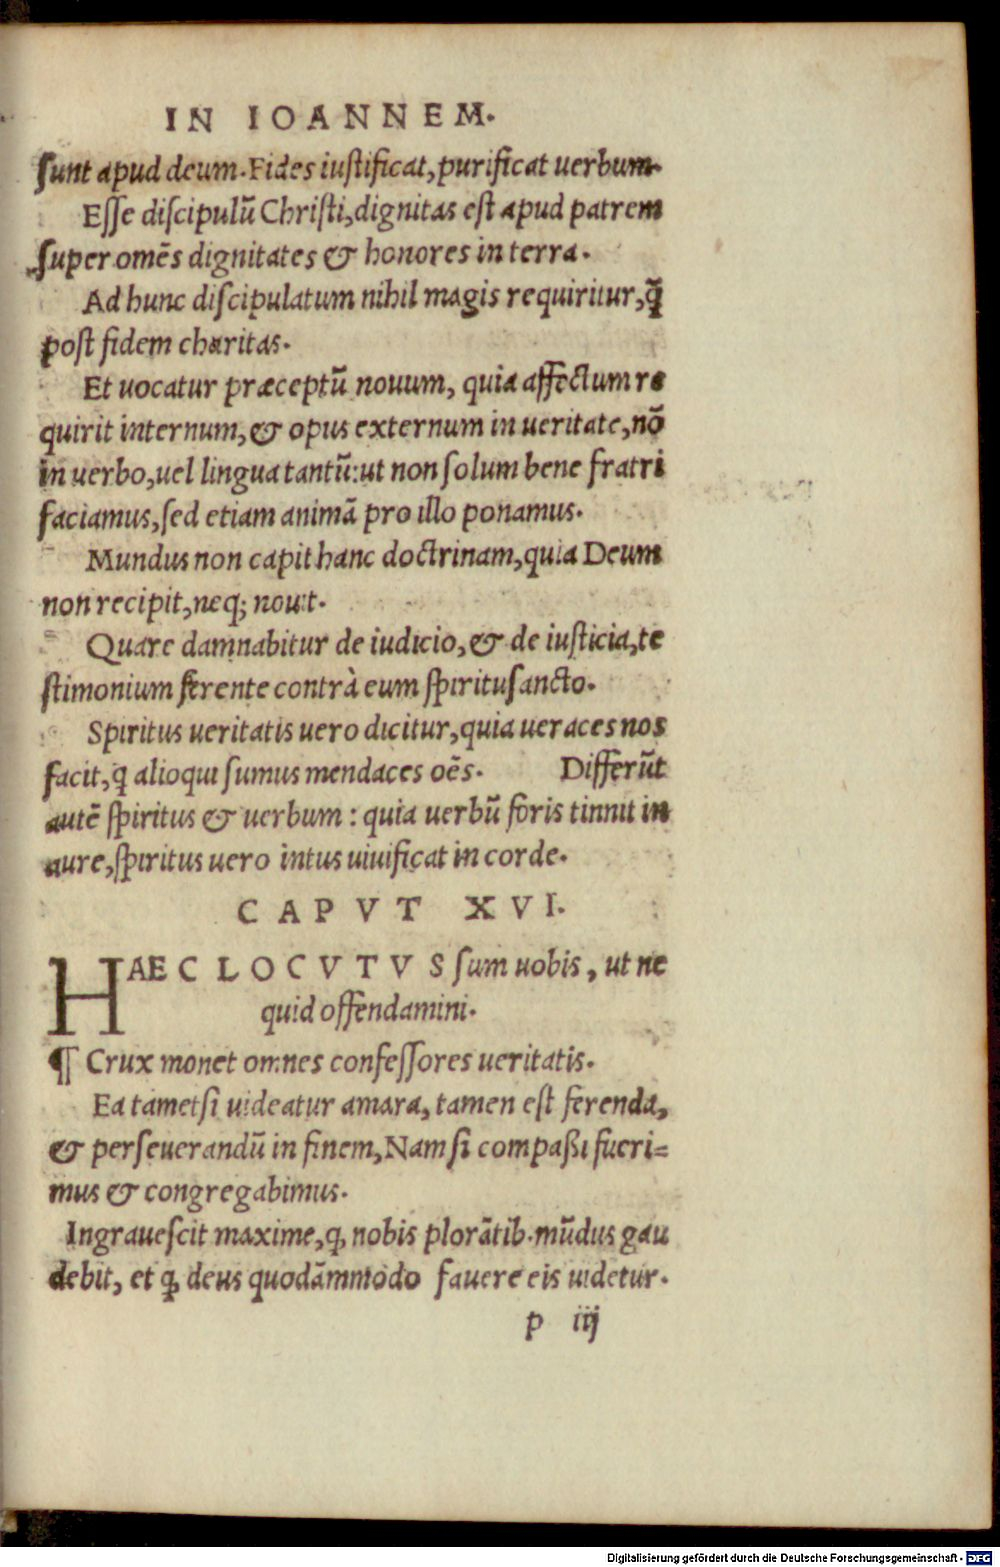 IN IOANNEM.
ſunt apud deum. Fides iuſtificat, purificat uerbum.
Eſſe diſcipulū Chriſti, dignitas eſt apud patrem
ſuper omēs dignitates & honores in terra.
Ad hunc diſcipulatum nihil magis requiritur, q̄
poſt fidem charitas.
Et uocatur præceptū nouum, quia affectum re
quirit internum, & opus externum in ueritate, nō
in uerbo, uel lingua tantū: ut non ſolum bene fratri
faciamus, ſed etiam animā pro illo ponamus.
Mundus non capit hanc doctrinam, quia Deum
non recipit, neq; nouit.
Quare damnabitur de iudicio, & de iuſticia, te
ſtimonium ferente contrà eum ſpiritu ſancto.
Spiritus ueritatis uero dicitur, quia ueraces nos
facit, q alioqui ſumus mendaces oēs. Differūt
autē ſpiritus & uerbum: quia uerbū foris tinnit in
aure, ſpiritus uero intus uiuificat in corde.
CAPVT XVI.
HAEC LOCVTVS ſum uobis, ut ne
quid offendamini.
¶ Crux monet omnes confeſſores ueritatis.
Ea tametſi uideatur amara, tamen eſt ferenda,
& perſeuerandū in finem, Nam ſi compaßi fueri=
mus & congregabimus.
Ingraueſcit maxime, ꝙ nobis plorātib. mūdus gau
debit, et ꝙ deus quodāmmodo fauere eis uidetur.
p iij
Digitalisierung gefördert durch die Deutsche Forschungsgemeinschaft - DFG